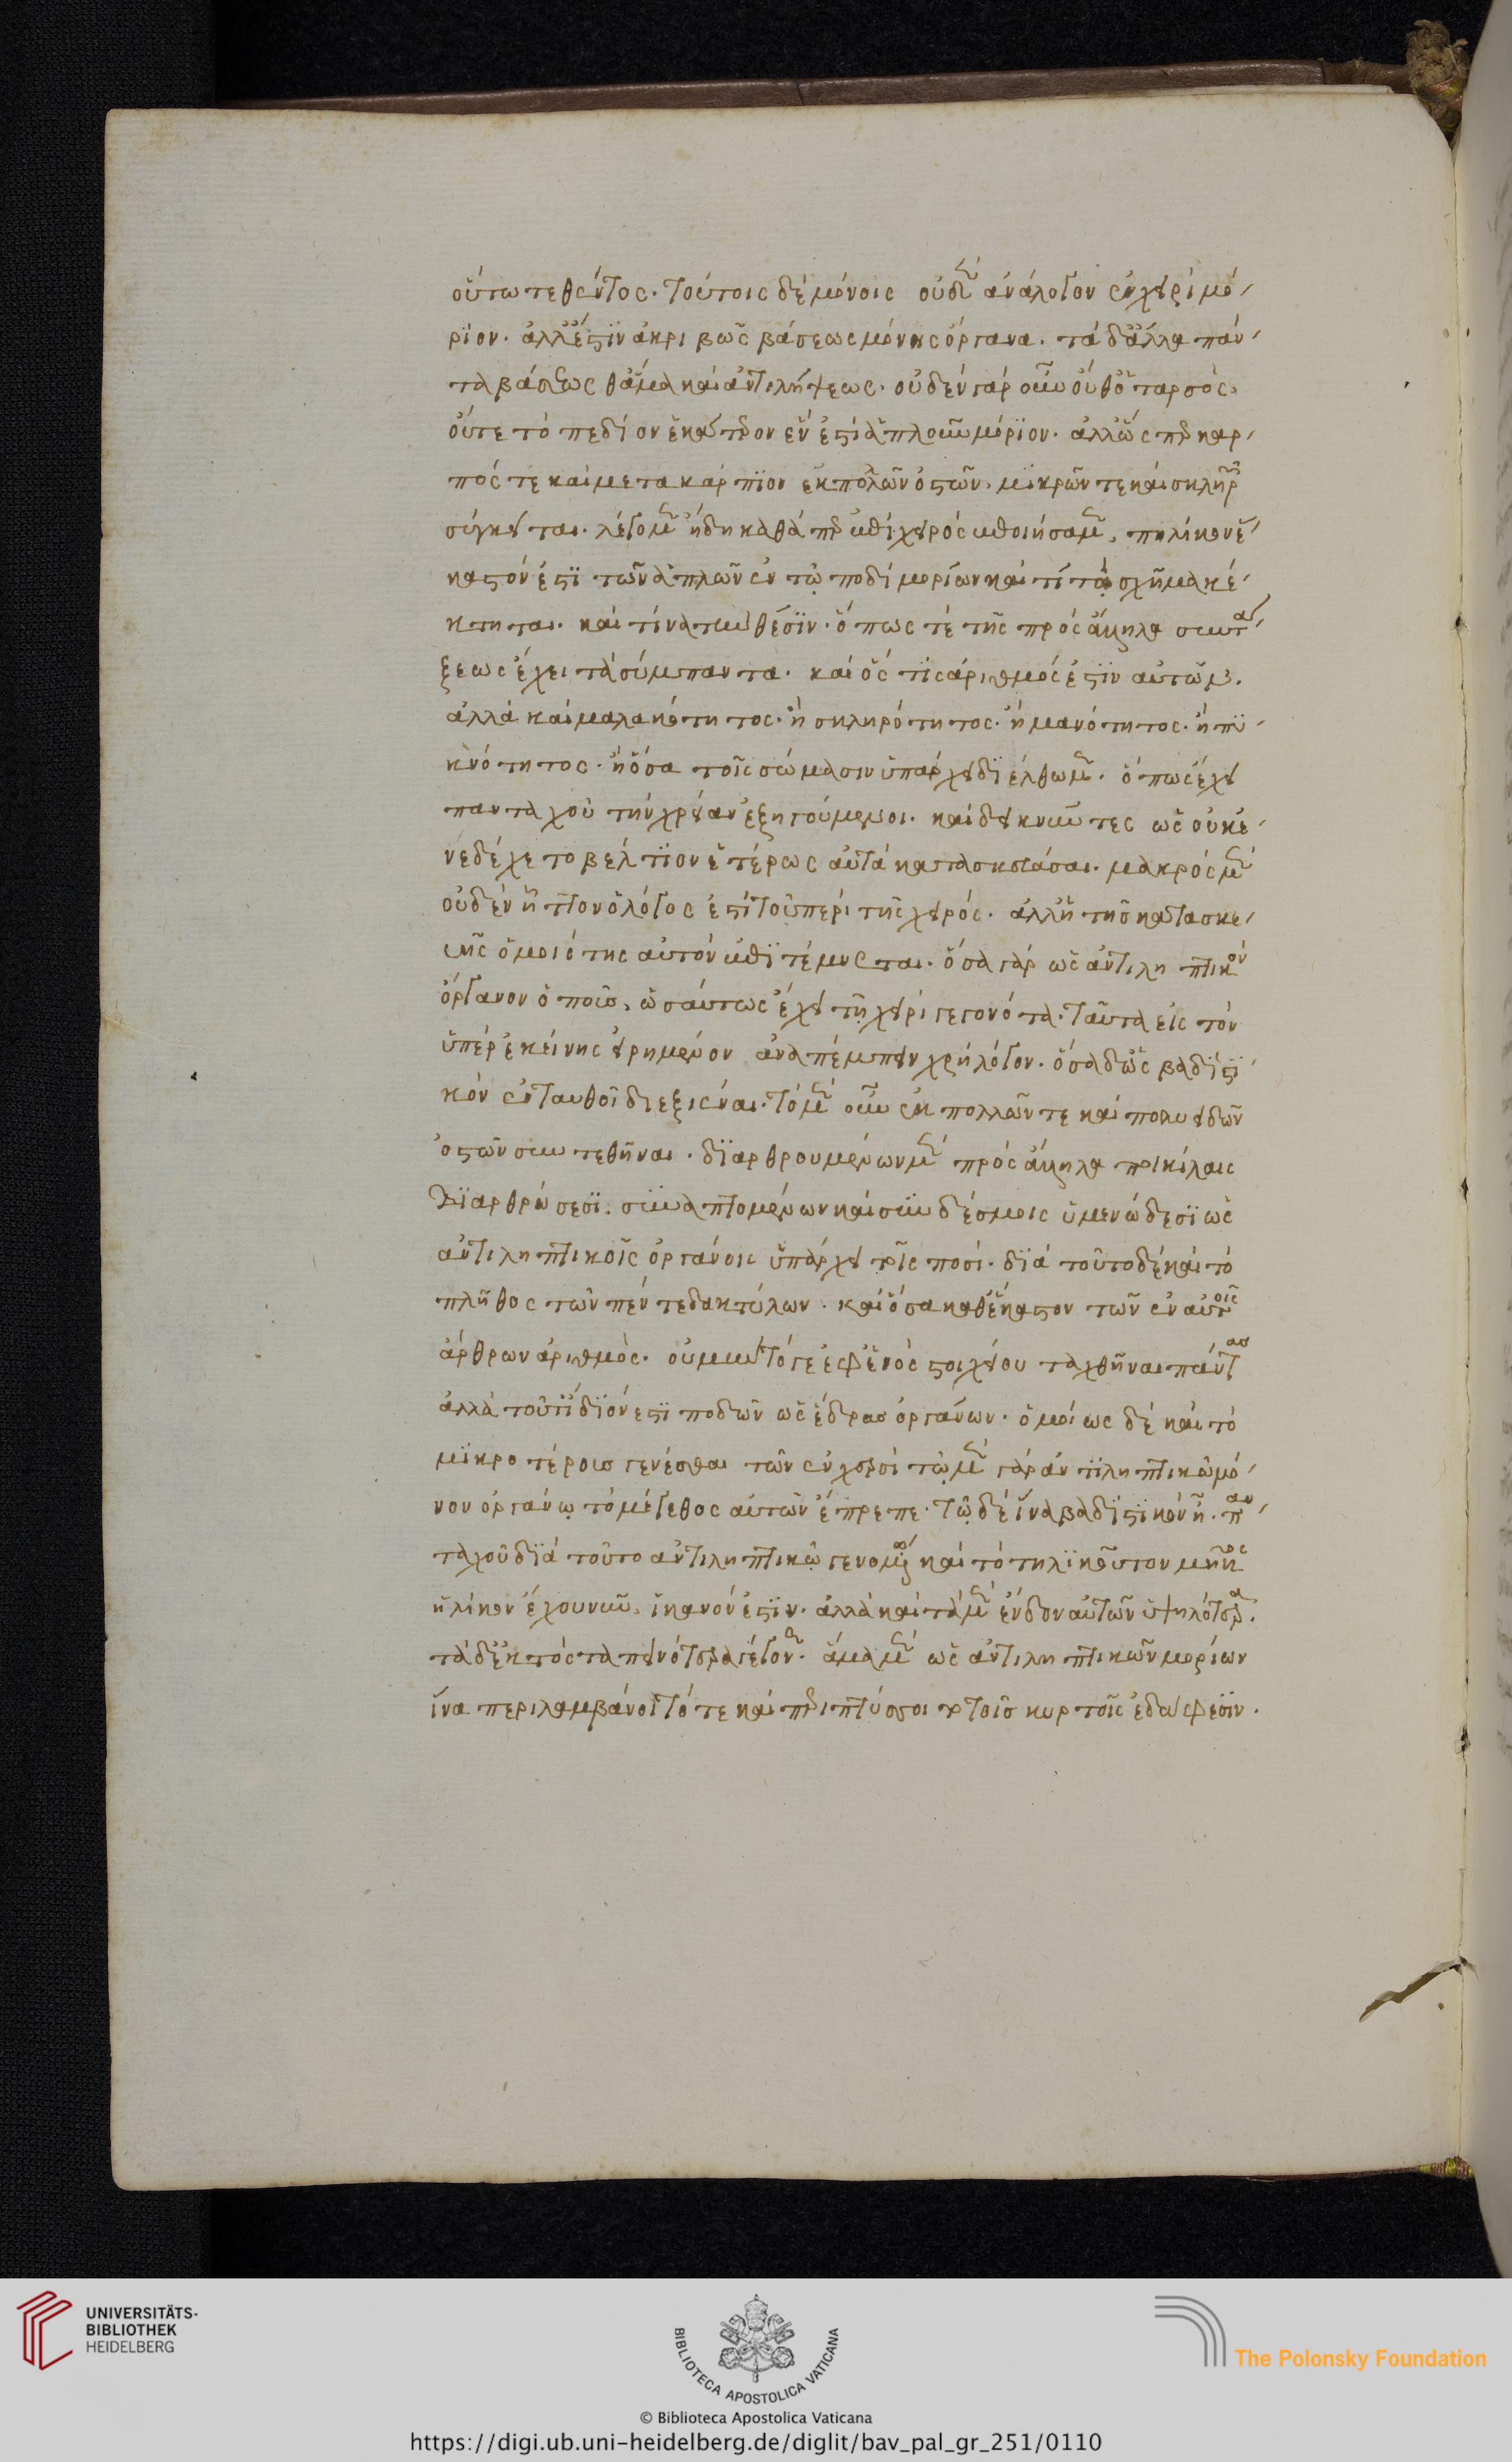 οὕτω τεθέντος. τούτοις δὲ μόνοις οὐδὲν ἀνάλογον ἐν χειρὶ μό-
ριον. ἀλλ' ἔστιν ἀκριβῶς βάσεως μόνης ὄργανα. τὰ δ' ἄλλα πάν-
τα βάσεώς θ' ἅμα καὶ ἀντιλήψεως. οὐδὲν γὰρ οὖν οὔθ' ὁ ταρσὸς.
οὔτε τὸ πεδίον ἑκάτερον ἕν ἐστιν ἁπλοῦν μόριον. ἀλλ' ὥσπερ καρ-
πός τε καὶ μετακάρπιον ἐκ πολλῶν ὀστῶν. μικρῶν τε καὶ σκληρῶν
σύγκειται. λέγομεν ἤδη καθάπερ ἐπὶ χειρὸς ἐποιήσαμεν, πηλίκον ἕ-
καστόν ἐστι τῶν ἁπλῶν ἐν τῷ ποδὶ μορίων καὶ τί τὸ σχῆμα κέ-
κτηται. καὶ τίνα τὴν θέσιν. ὅπως τε τῆς πρὸς ἄλληλα συντά-
ξεως ἔχει τὰ σύμπαντα. καὶ ὅς τις ἀριθμός ἐστιν αὐτῶν.
ἀλλὰ καὶ μαλακότητος. ἢ σκληρότητος. ἢ μανότητος. ἢ πυ-
κνότητος. ἢ ὅσα τοῖς σώμασιν ὑπάρχει διέλθωμεν. ὅπως ἔχει
πανταχοῦ τὴν χρείαν ἐξηγούμενοι. καὶ δεικνύντες ὡς οὐκ ἐ-
νεδέχετο βέλτιον ἑτέρως αὐτὰ κατασκευάσαι. μακρὸς μὲν
οὐδὲν ἧττον ὁ λόγος ἐστὶ τοῦ περὶ τῆς χειρός. ἀλλ' ἡ τῆς κατασκε-
υῆς ὁμοιότης αὐτὸν ἐπιτέμνεται. ὅσα γὰρ ὡς ἀντιληπτικὸν
ὄργανον ὁ ποῦς, ὡσαύτως ἔχει τῇ χειρὶ γεγονότα. ταῦτα εἰς τὸν
ὑπὲρ ἐκείνης εἰρημένον ἀναπέμπειν χρὴ λόγον. ὅσα δ' ὡς βαδιστι-
κόν ἐνταυθοῖ διεξιέναι. τὸ μὲν οὖν ἐκ πολλῶν τε καὶ πολυειδῶν
ὀστῶν συντεθῆναι. διαρθρουμένων μὲν πρὸς ἄλληλα ποικίλαις
διαρθρώσεσι. συναπτομένων καὶ συνδέσμοις ὑμενώδεσι ὡς
ἀντιληπτικοῖς ὀργάνοις ὑπάρχει τοῖς ποσί. διὰ τοῦτο δὲ καὶ τὸ
πλῆθος τῶν πέντε δακτύλων. καὶ ὅσα καθ' ἕκαστον τῶν ἐν αὐτοῖς
ἄρθρων ἀριθμὸς. οὐ μὴν τό γε ἐφ' ἑνὸς στοίχου ταχθῆναι πάντας
ἀλλὰ τοῦτ' ἴδιόν ἐστι ποδῶν ὡς ἕδρας ὀργάνων. ὁμοίως δὲ καὶ τὸ
μικροτέρους γενέσθαι τῶν ἐν χερσὶ τῷ μὲν γὰρ ἀντιληπτικῷ μό-
νον ὀργάνῳ τὸ μέγεθος αὐτῶν ἔπρεπε. τῷ δὲ ἵνα βαδιστικὸν ᾖ. παν-
ταχοῦ διὰ τοῦτο ἀντιληπτικῷ γενομένῳ καὶ τὸ τηλικοῦτον μῆκος
ἡλίκον ἔχουν νῦν. ἱκανόν ἐστιν. ἀλλὰ καὶ τὰ μὲν ἔνδον αὐτῶν ὑψηλότερα.
τὰ δ' ἐκτὸς ταπεινότερα γέγονεν. ἅμα μὲν ὡς ἀντιληπτικῶν μορίων
ἵνα περιλαμβάνοιτό τε καὶ περιπτύσσοιτο τοῖς κυρτοῖς ἐδάφεσιν.
UNIVERSITÄTS-
BIBLIOTHEK
HEIDELBERG
BIBLIOTECA APOSTOLICA VATICANA
The Polonsky Foundation
© Biblioteca Apostolica Vaticana
https://digi.ub.uni-heidelberg.de/diglit/bav_pal_gr_251/0110